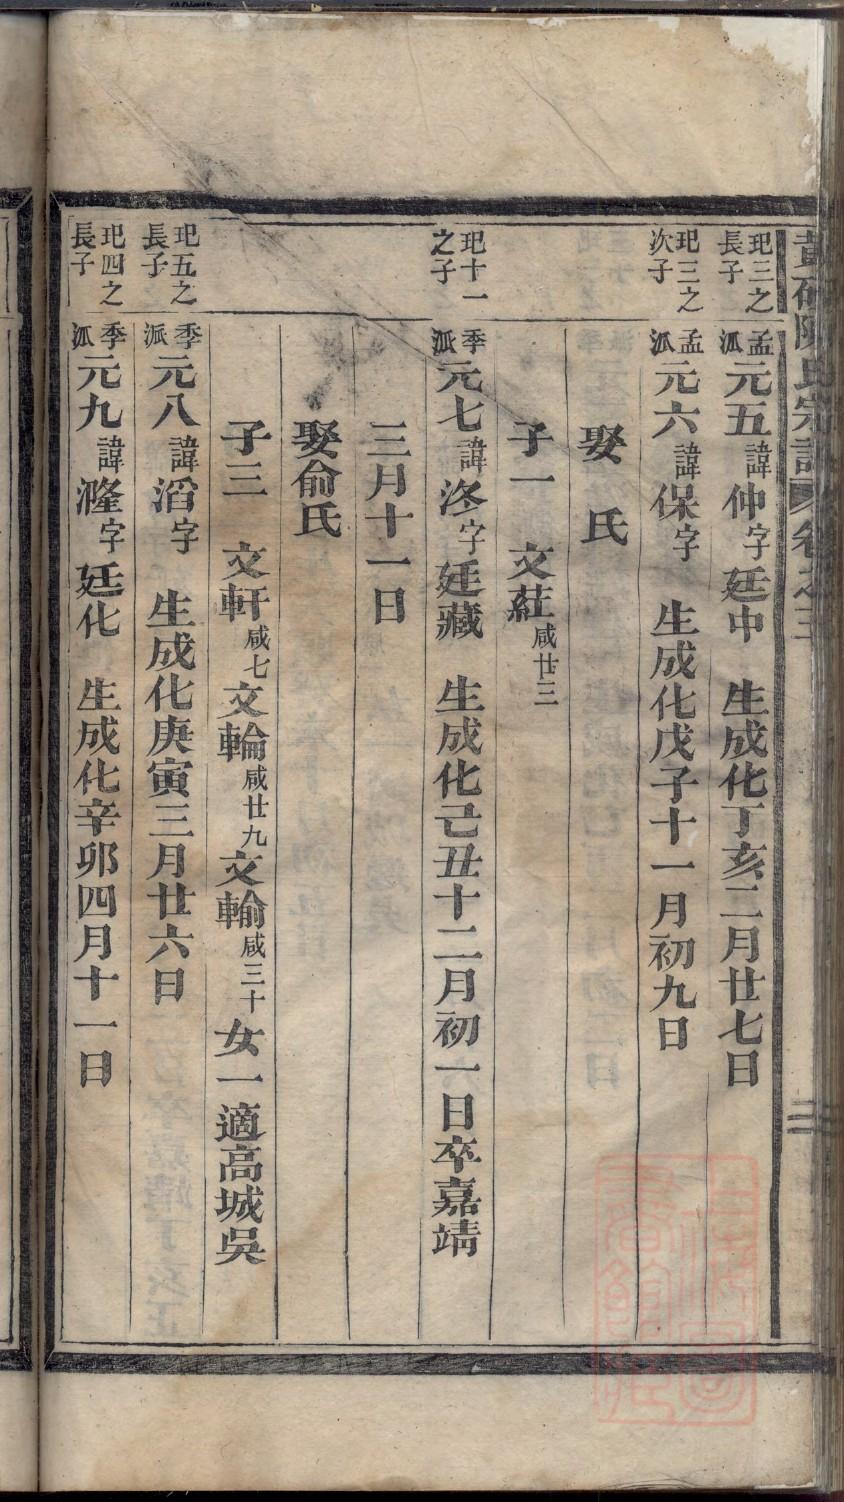 陳氏宗譜 卷之三
二
玘三之長子 孟派 元五 諱仲 字廷中 生成化丁亥二月廿七日
玘三之次子 孟派 元六 諱保 字 生成化戊子十一月初九日
娶 氏
子一 文莊咸廿三
玘十一之子 季派 元七 諱洛 字廷藏 生成化己丑十二月初一日卒嘉靖
三月十一日
娶俞氏
子三 文軒咸七 文輪咸廿九 文輸咸三十 女一適高城吳
玘五之長子 季派 元八 諱滔 字 生成化庚寅三月廿六日
玘四之長子 季派 元九 諱漋 字廷化 生成化辛卯四月十一日